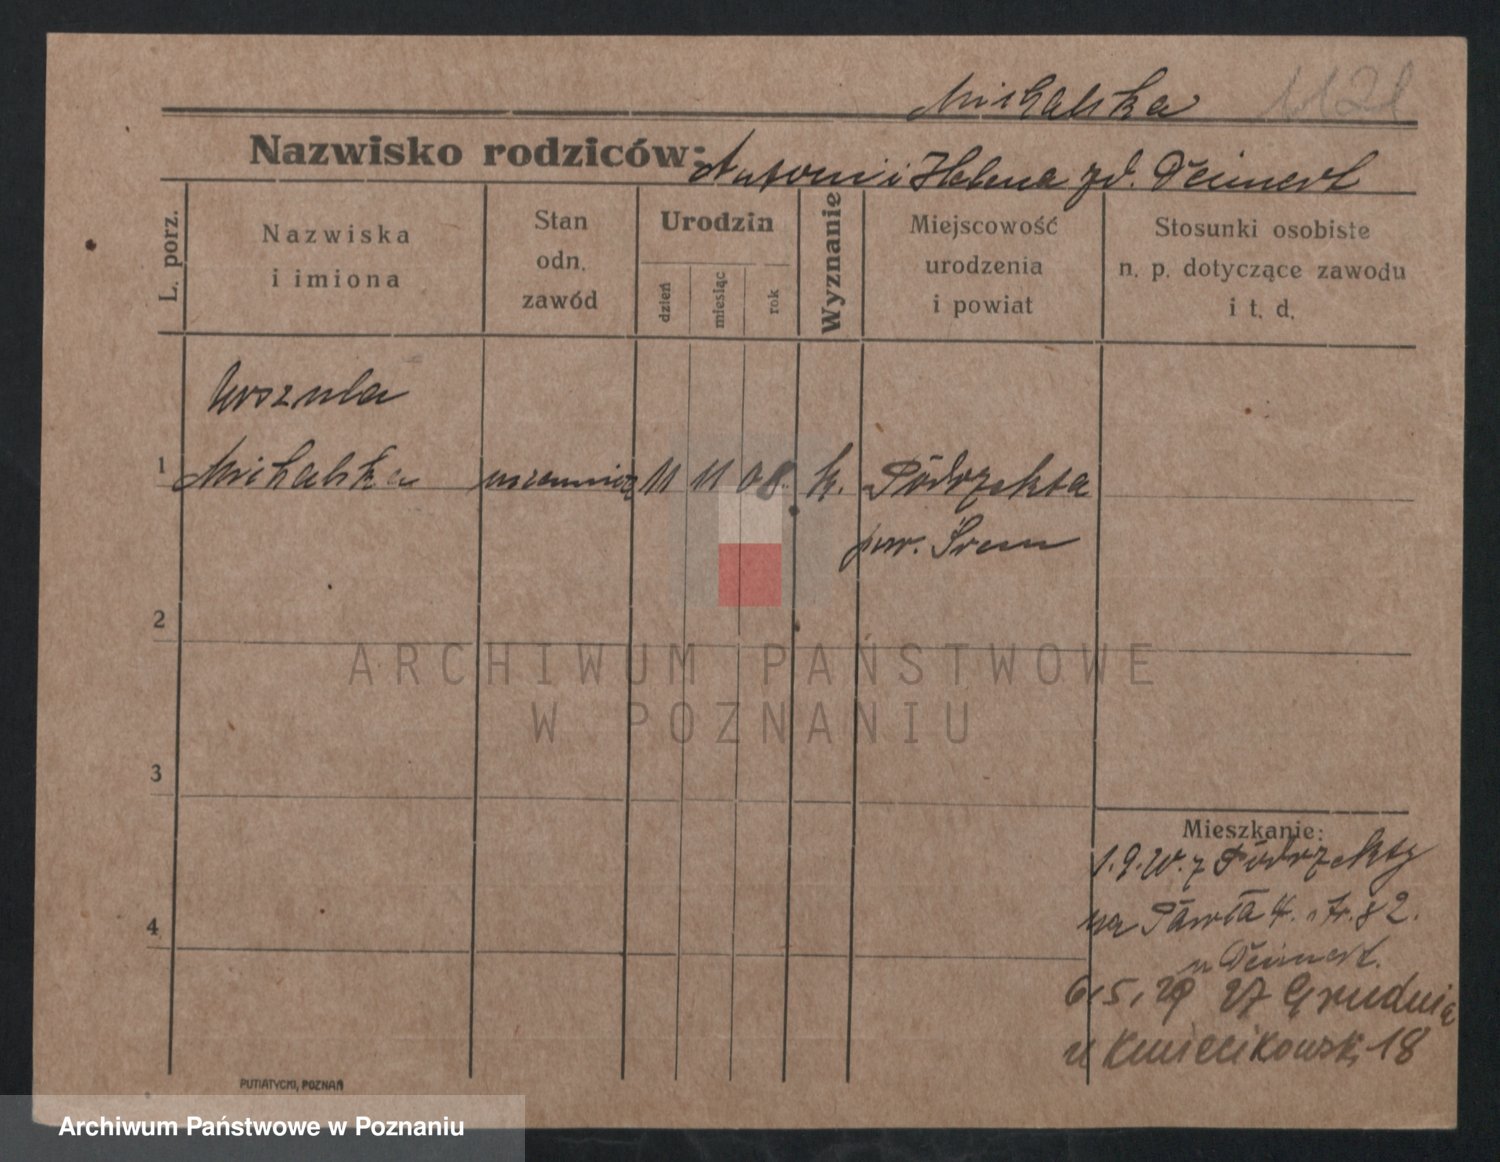 Michalska 1121
Nazwisko rodziców: Antoni i Helena zd. Deinert
L. porz.
Nazwiska
i imiona
Stan
odn.
zawód
Urodzin
dzień
miesiąc
rok
Wyznanie
Miejscowość
urodzenia
i powiat
Stosunki osobiste
n. p. dotyczące zawodu
i t. d.
Urszula
1 Michalska uczennica 11 11 08. k. Podrzekta
pow. Śrem
2
ARCHIWUM PAŃSTWOWE
W POZNANIU
3
Mieszkanie:
1.9. z Podrzekty
na Pawła 4. 82.
4
u Deinert.
6.5.29 27 Grudnia
u Kmiecikowski 18
PUTIATYCKI, POZNAŃ
Archiwum Państwowe w Poznaniu